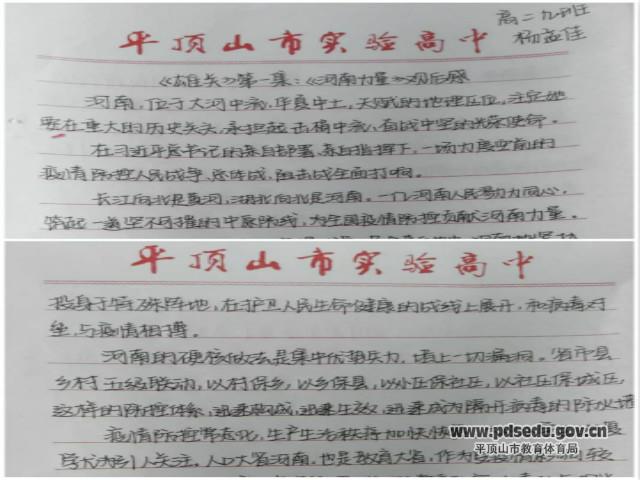 高二九班
杨益佳
平顶山市实验高中
《雄关》第一集:《河南力量》观后感
河南,位于大河中流,华夏中土,天赋的地理区位,注定她
要在重大的历史关头,承担起击楫中流、奋战中坚的光荣使命。
在习近平总书记的亲自部署、亲自指挥下,一场力度空前的
疫情防控人民战争、总体战、阻击战全面打响。
长江向北是黄河,湖北向北是河南。一亿河南人民勠力同心,
筑起一道坚不可摧的中原防线,为全国疫情防控贡献河南力量。
平顶山市实验高中
投身于特殊阵地,在护卫人民生命健康的战线上展开,和病毒对
垒,与疫情相搏。
河南的硬核做法是集中优势兵力,堵上一切漏洞。省市县
乡村五级联动,以村保乡,以乡保县,以小区保社区,以社区保城区,
这样的防控体系,迅速构成,迅速生效,迅速成为隔开病毒的防火墙
疫情防控常态化,生产生活秩序加快恢
www.pdsedu.gov.cn
引人关注。人口大省河南,也是教育大省,作为
平顶山市教育体育局